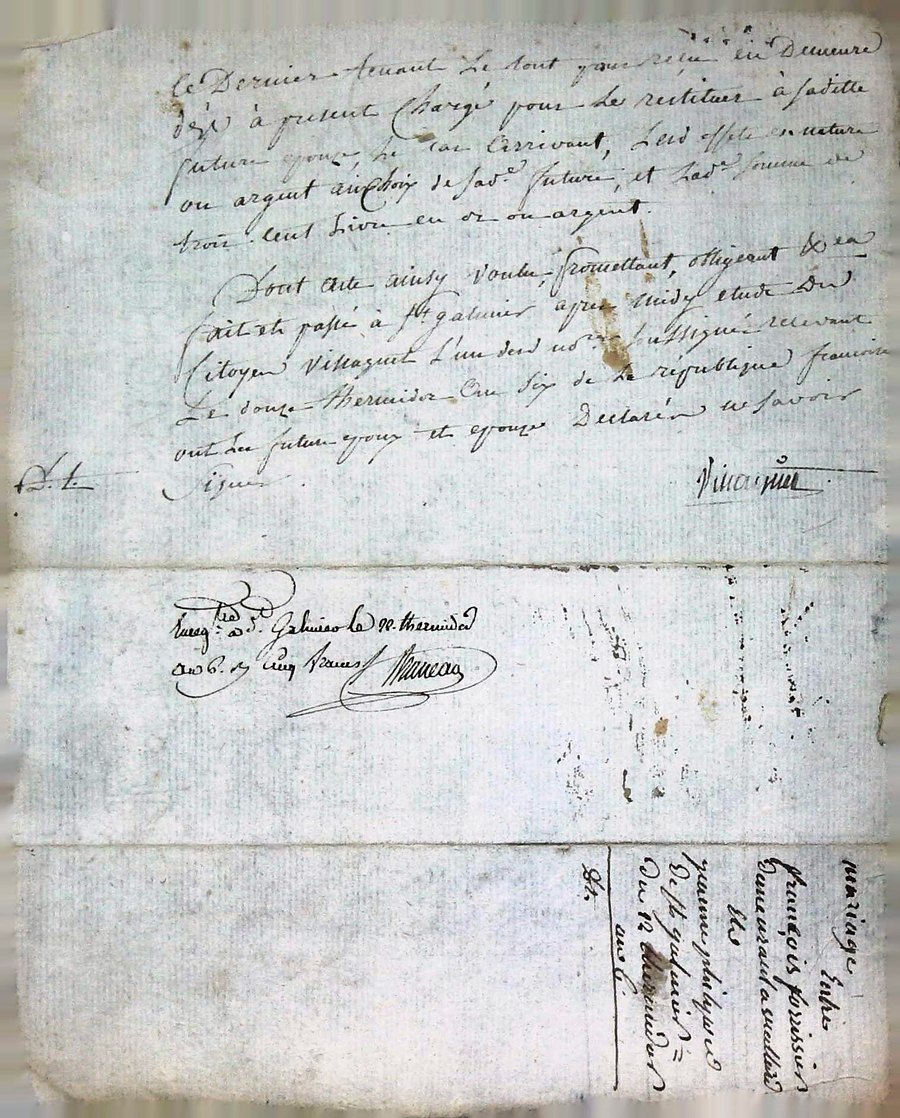 ce Dernier tenant le tout pour reçu en Demeure
dèz à present Chargé pour le restituer à saditte
future epouze, le cas Arrivant, lesd effets en nature
ou argent au Choix de sad.e future, et lad.e somme de
trois Cent livre en or ou argent.
Dont acte ainsy voulu, promettant, obligeant &ea
fait et passé à St galmier apres midy etude du
Citoyen Vissaguet l'un desd not.res soussignés recevant
Le douze thermidor an six de la république francoise
ont les futurs epoux et epouze Declarés ne savoir
signer.
D. t.
Vissaguet
Enreg.tré a St. Galmier le 22 thermidor
an 6. R. cinq francs
mariage
Entre
françois
demeurant a
Et
jeanne philype
de St galmier =
du 12 thermidor
an 6